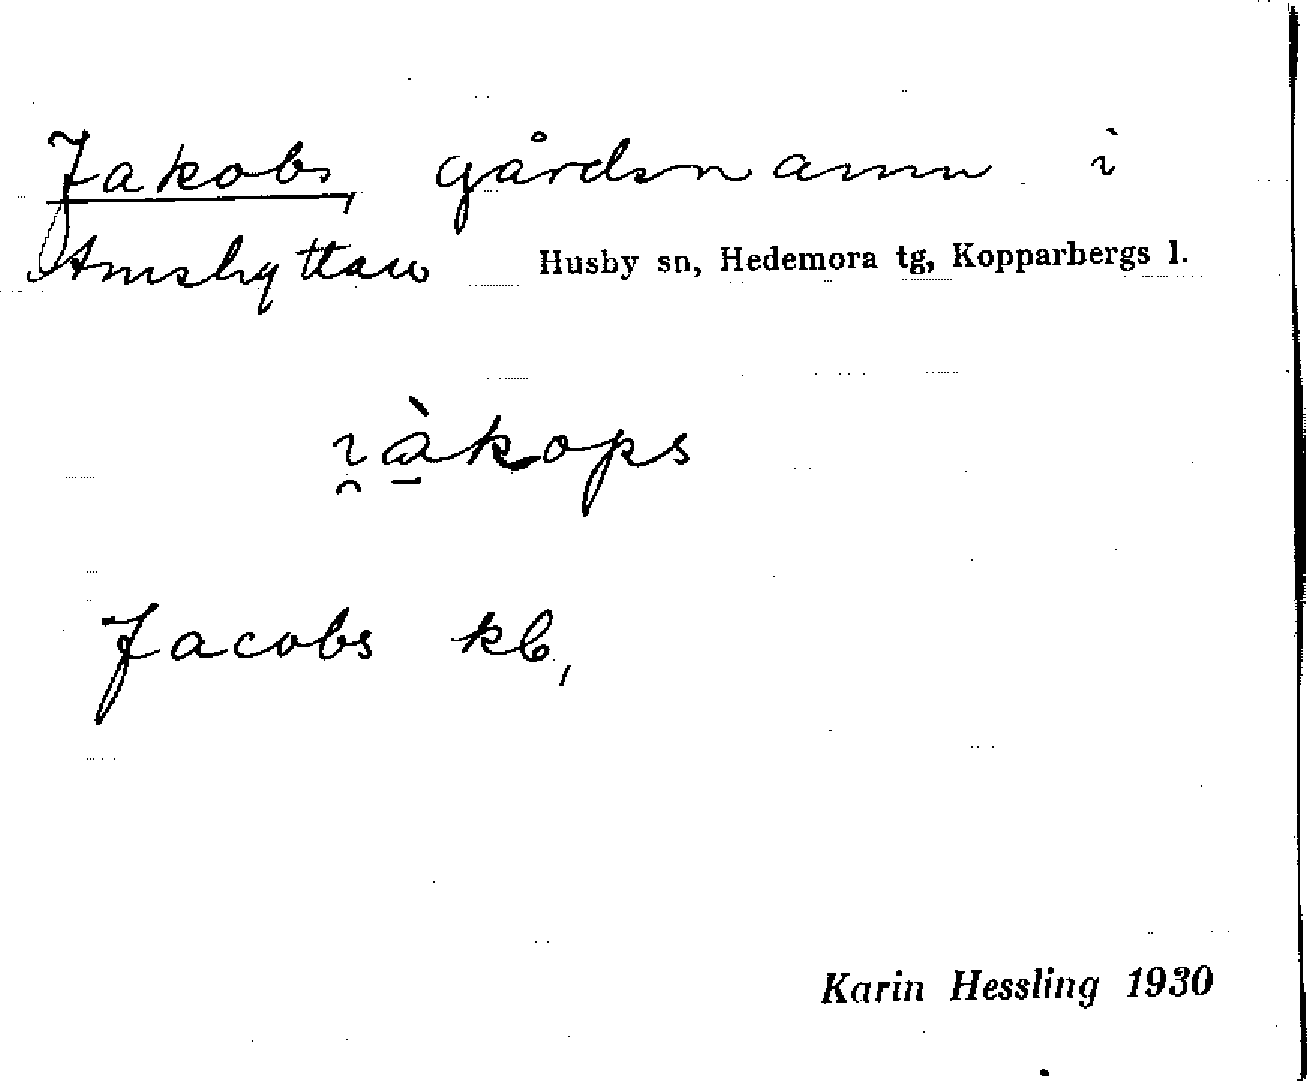 Jakobs, gårdsnamn i
Amshyttan Husby sn, Hedemora tg, Kopparbergs l.
i̯à̱kops
Jacobs kb,
Karin Hessling 1930